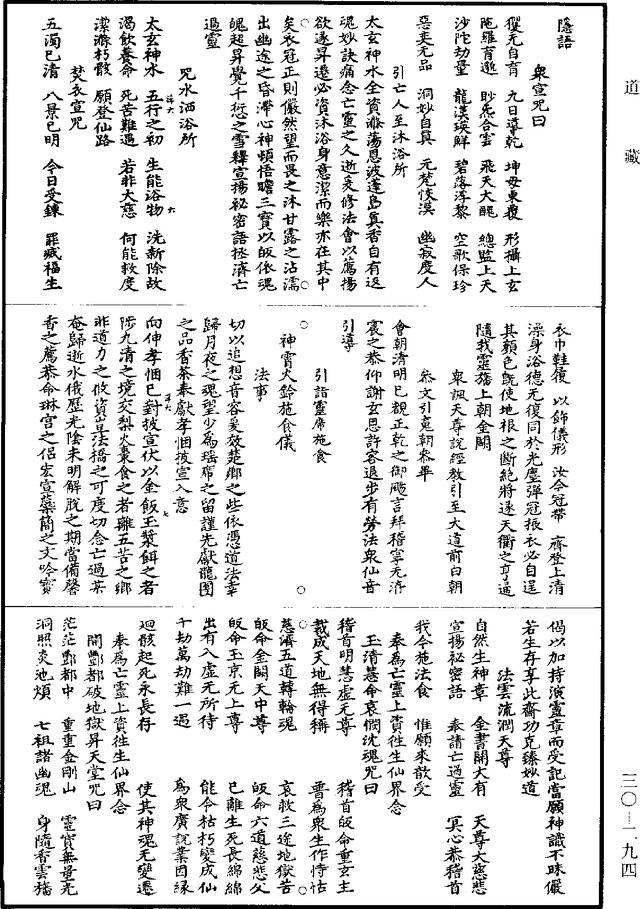 道藏
隱語
衆宣咒曰
玃无自育　九日導乾　坤母東覆　形攝上玄
陁羅育逝　眇炁合雲　飛天大醜　總監上天
沙陀劫量　龍漢瑛鮮　碧落浮黎　空歌保珍
惡奕无品　洞妙自真　元梵恢漠　幽寂度人
引亡人至沐浴所
太玄神水全資滌蕩恩波蓬島真香自有返
魂妙訣痛念亡靈之久逝爰修法會以薦揚
欲遂昇遷必資沐浴身意潔而樂亦在其中
矣衣冠正則儼然望而畏之沐甘露之沾濡
出幽途之昏滯心神頓悟瞻三寶以皈依魂
魄超昇覺千愆之雪釋宣揚秘密語拯濟亡
過靈
咒水洒浴所
太玄神水　五行之初　生能浴物　洗新除故
渴飲養命　死苦難遇　若非大慈　何能救度
潔滌朽骸　願登仙路
焚衣宣咒
五濁已清　八景已明　今日受鍊　罪滅福生
衣巾鞋履　以飾儀形　汝今冠帶　齊登上清
澡身浴德无復同於光塵彈冠振衣必自逞
其顏色旣使地根之斷絶將遂天衢之亨通
隨我靈旛上朝金闕
衆諷天尊說經教引至大道前白朝
叅文引䰟朝叅畢
會朝清明已覩正乾之御颺言拜稽寧无濟
衮之恭仰謝玄恩許容退步有勞法衆仙音
引導
引詣靈席施食
神霄火鈴施食儀
法事
切以追想音容爰效楚鄉之些依憑道法幸
歸月夜之魂望少為瑶席之留謹先獻龍團
之品香茶奉獻孝悃披宣入意
向伸孝悃已對披宣伏以金飯玉漿餌之者
陟九清之境交梨火棗食之者離五苦之鄉
非道力之攸資豈法橋之可度切念亡過某
奄歸逝水俄歷光陰未明解脫之期當備馨
香之薦恭命琳宫之侣宏宣蘂簡之文吟寶
偈以加持演靈章而受記當願神識不昧儼
若生存享此齋功克臻妙道
法雲流潤天尊
自然生神章　全書開大有　天尊大慈悲
宣揚祕密語　奉請亡過靈　冥心恭稽首
我今施法食　惟願來歆受
奉為亡靈上資徃生仙界念
玉清慧命哀憫沈魂咒曰
稽首明慧虛无尊　稽首皈命重玄主
裁成天地無得稱　普為衆生作恃怙
慈濟五道轉輪魂　哀救三途地獄苦
皈命金闕天中尊　皈命六道慈悲父
皈命玉京无上尊　已離生死長綿綿
出有入虛无所待　能令枯朽變成仙
千劫萬劫難一遇　為衆廣說業因緣
迴骸起死永長存　使其神魂无變遷
奉為亡靈上資徃生仙界念
開酆都破地獄昇天堂咒曰
茫茫酆都中　重重金剛山　靈寶無量光
洞照炎池煩　七祖諸幽魂　身隨香雲旛
三〇－二九四